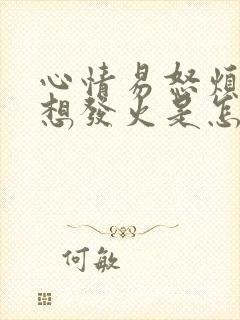 心情易怒煩
想發火是怎
何敏